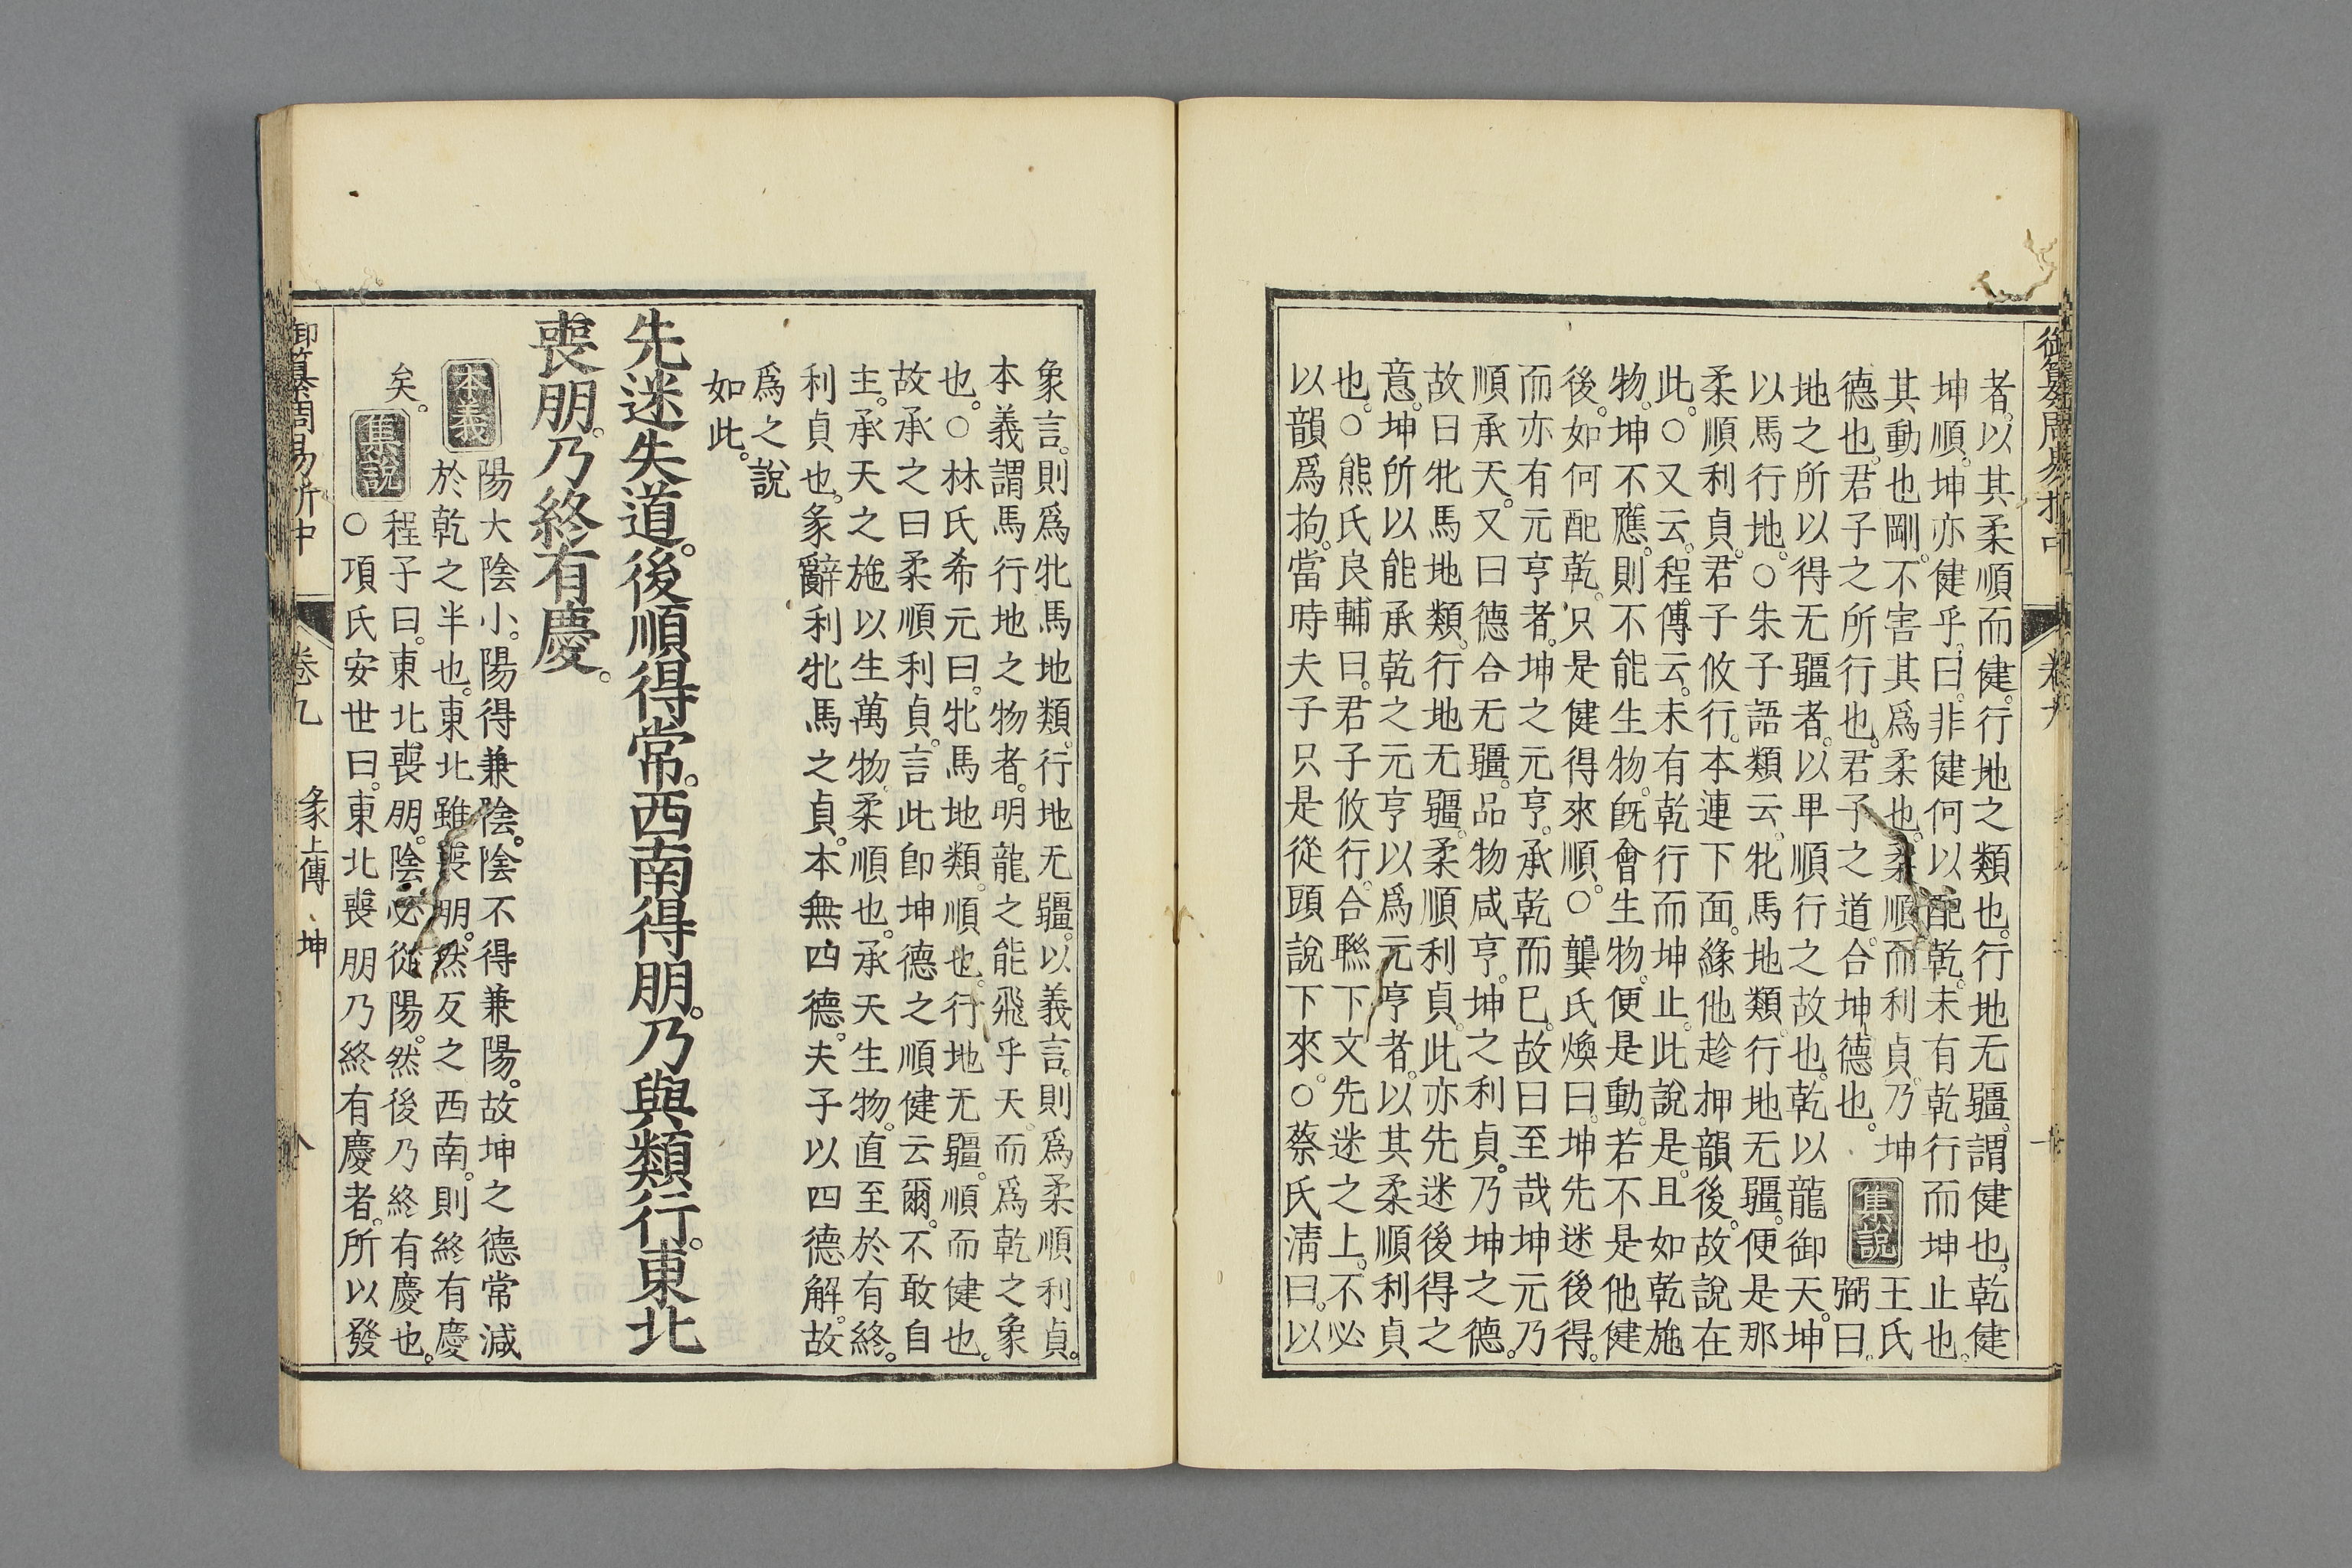 御纂周易折中
卷九
者。以其柔順而健。行地之類也。行地无疆。謂健也。乾健
坤順。坤亦健乎。曰。非健何以配乾。未有乾行而坤止也。
其動也剛。不害其為柔也。柔順而利貞。乃坤
德也。君子之所行也。君子之道。合坤德也。
集說
王氏
弼曰。
地之所以得无疆者。以卑順行之故也。乾以龍御天。坤
以馬行地。○朱子語類云。牝馬地類。行地无疆。便是那
柔順利貞。君子攸行。本連下面。緣他趁押韻後。故說在
此。○又云。程傳云。未有乾行而坤止。此說是。且如乾施
物。坤不應。則不能生物。既會生物。便是動。若不是他健
後。如何配乾。只是健得來順。○龔氏煥曰。坤先迷後得。
而亦有元亨者。坤之元亨。承乾而已。故曰至哉坤元乃
順承天。又曰德合无疆。品物咸亨。坤之利貞。乃坤之德。
故曰牝馬地類。行地无疆。柔順利貞。此亦先迷後得之
意。坤所以能承乾之元亨以為元亨者。以其柔順利貞
也。○熊氏良輔曰。君子攸行。合聮下文先迷之上。不必
以韻為拘。當時夫子只是從頭說下來。○蔡氏清曰。以
象言。則為牝馬地類。行地无疆。以義言。則為柔順利貞。
本義謂馬行地之物者。明龍之能飛乎天。而為乾之象
也。○林氏希元曰。牝馬地類。順也。行地无疆。順而健也。
故承之曰柔順利貞。言此卽坤德之順健云爾。不敢自
主。承天之施以生萬物柔順也。承天生物。直至於有終。
利貞也。彖辭利牝馬之貞。本無四德。夫子以四德解。故
為之說
如此。
先迷失道。後順得常。西南得朋。乃與類行。東北
喪朋。乃終有慶。
本義
陽大陰小。陽得兼陰。陰不得兼陽。故坤之德常減
於乾之半也。東北雖喪朋。然反之西南。則終有慶
矣。
集說
程子曰。東北喪朋。陰必從陽。然後乃終有慶也。
○項氏安世曰。東北喪朋乃終有慶者。所以發
御纂周易折中
卷九
彖上傳
坤
八